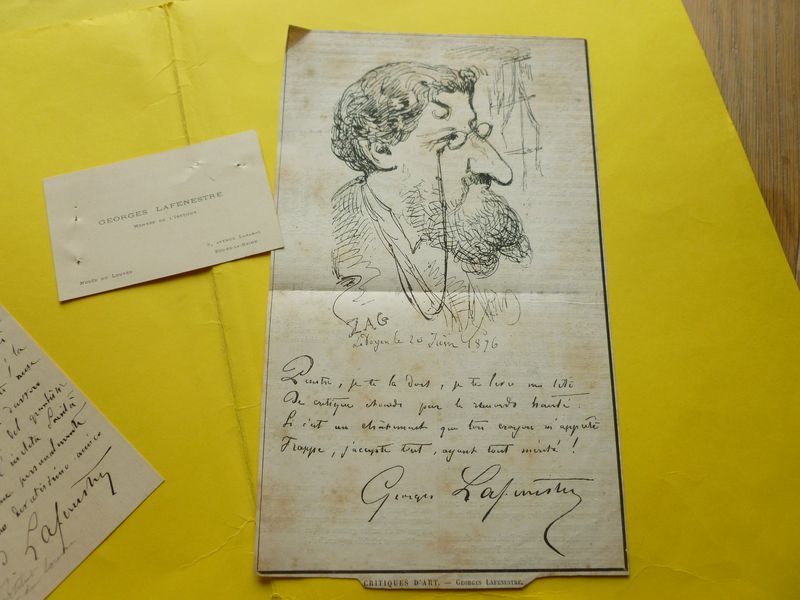 GEORGES LAFENESTRE
MEMBRE DE L'INSTITUT
5, AVENUE LAKANAL
BOURG-LA-REINE
MUSÉE DU LOUVRE
ZAG
le 20 Juin 1876
Peintre, je te la dois, je te livre ma tête
De critique étourdi par le remords hanté.
Si c'est un châtiment que ton crayon m'apprête
Frappe, j'accepte tout, ayant tout mérité !
Georges Lafenestre
CRITIQUES D'ART. — GEORGES LAFENESTRE.
la
del
inclita
personalmente
amico
Lafenestre